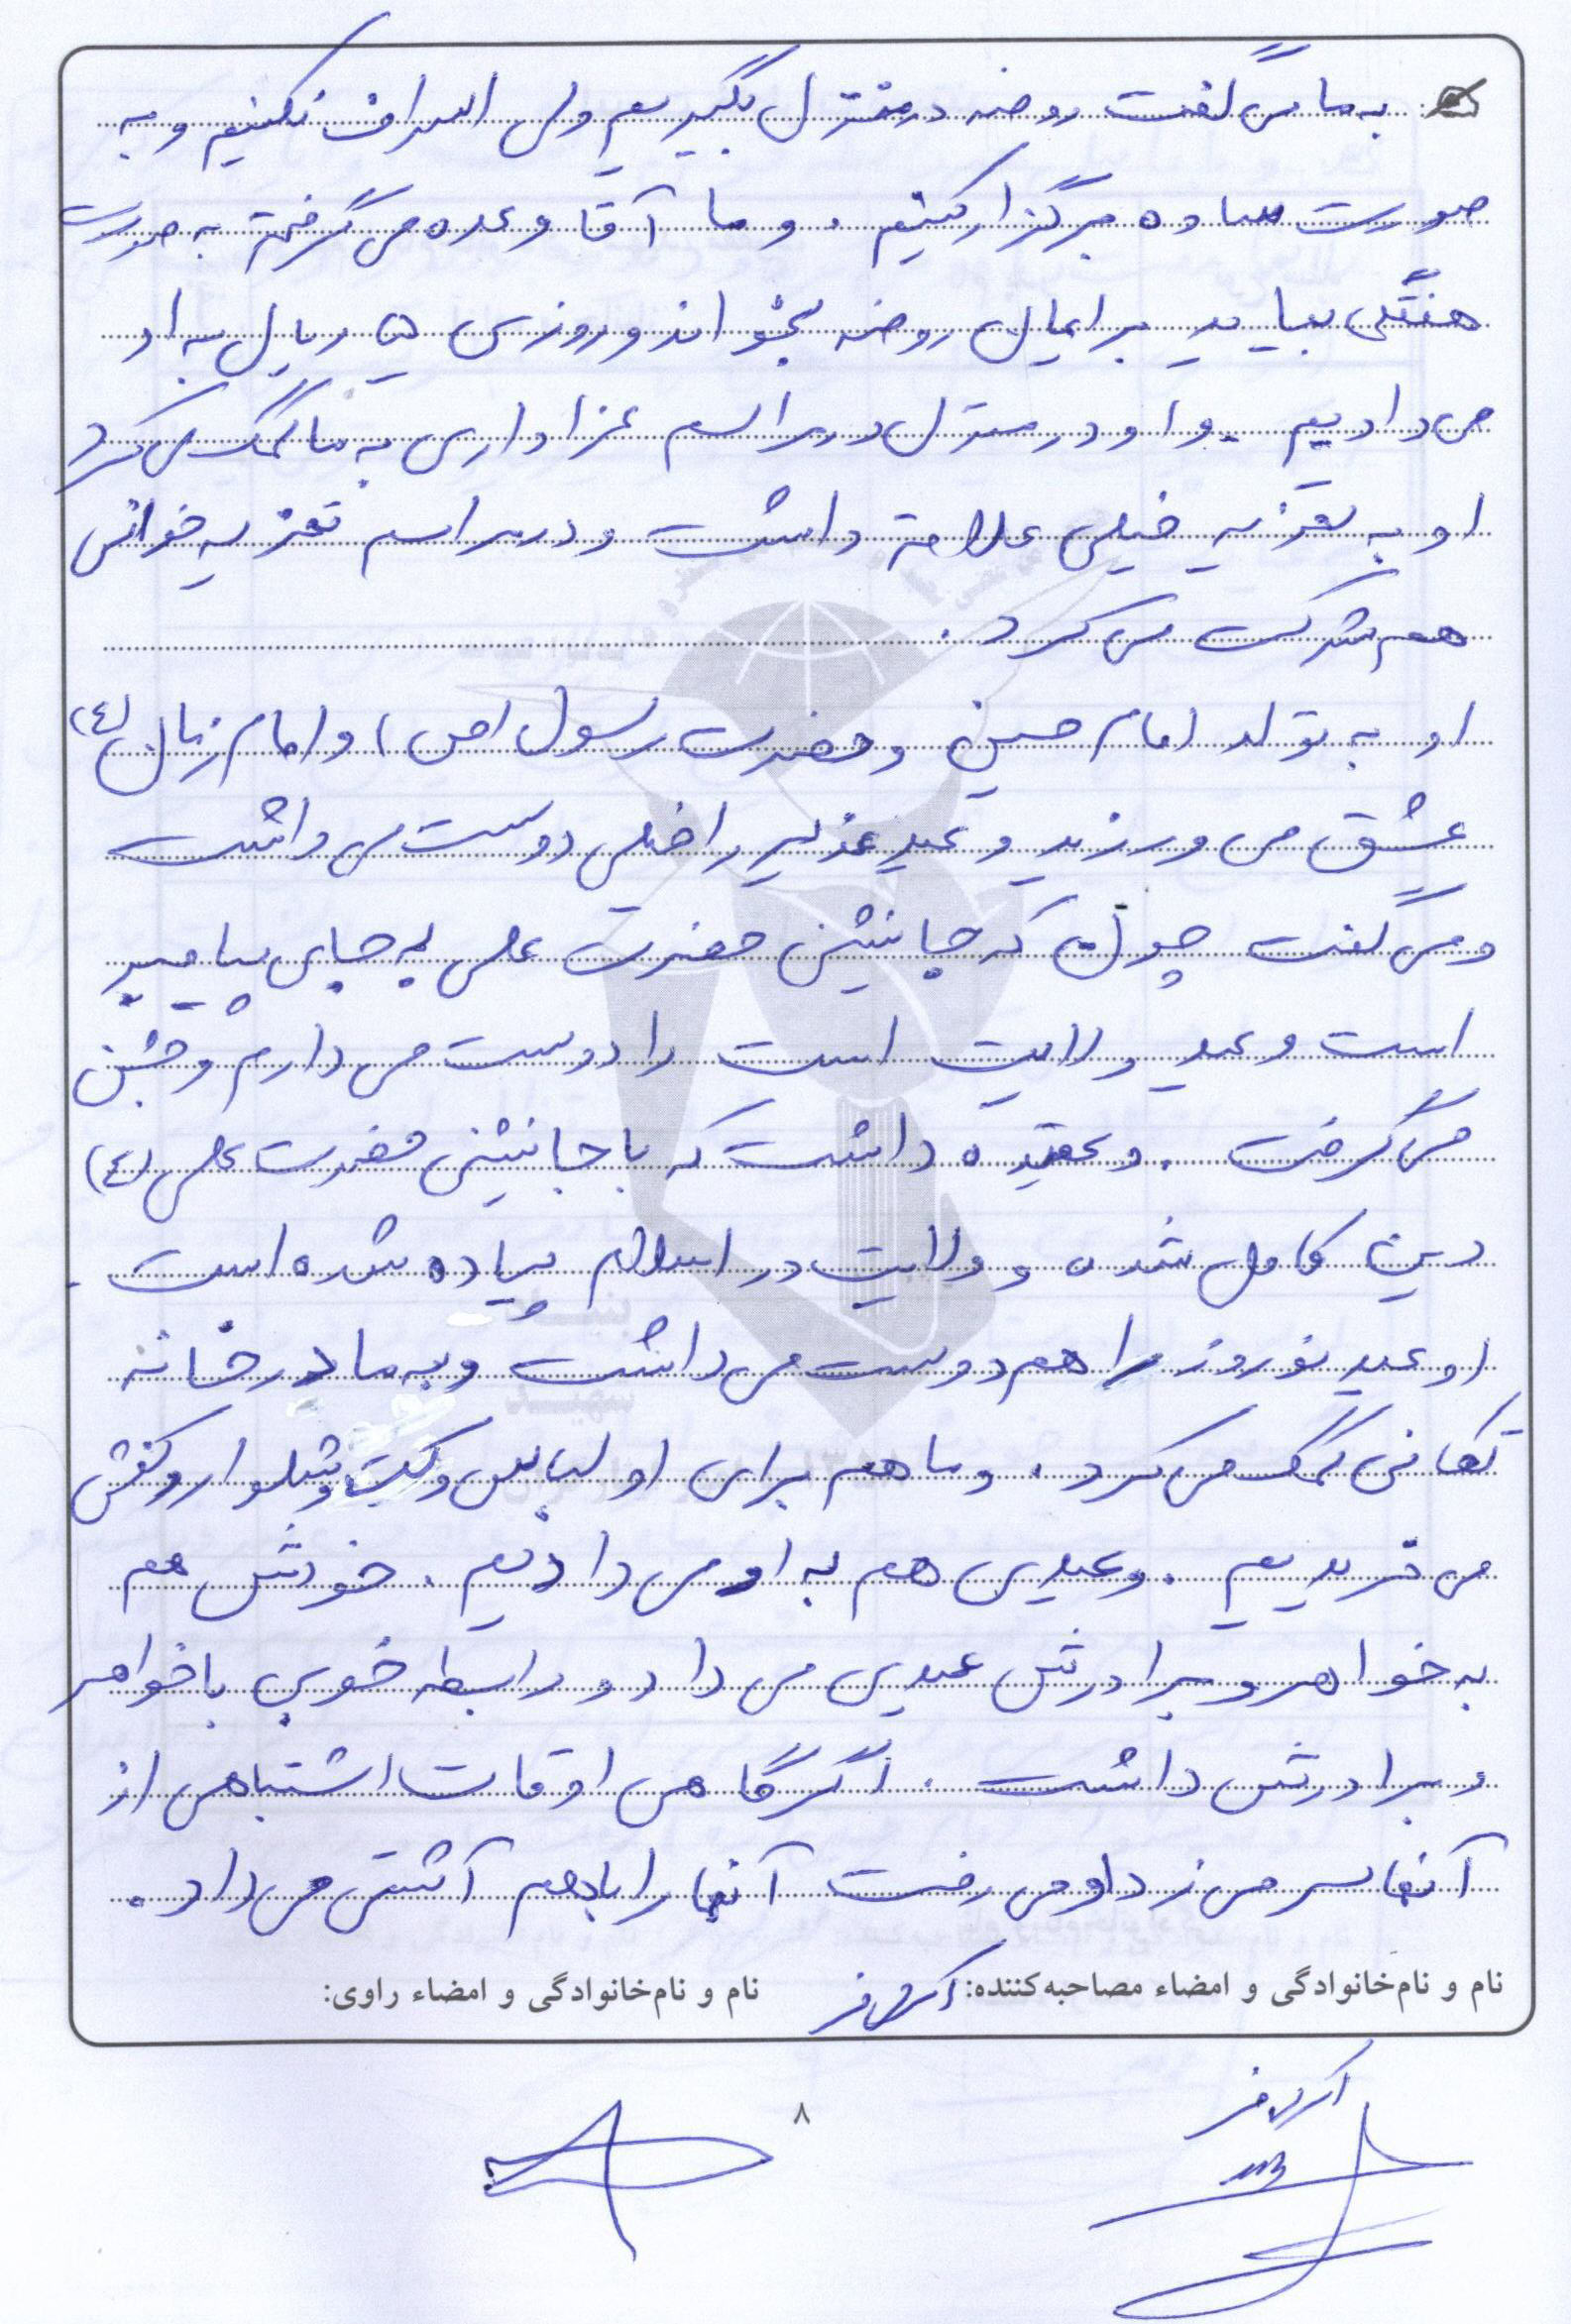 به ما می گفت روضه در منزل بگیریم ولی اسراف نکنیم و به
صورت ساده برگزار کنیم. و ما آقا وعده می گرفتیم به صورت
هفتگی بیاید برایمان روضه بخواند و روزی ۵ ریال به او
می دادیم. و او در منزل در مراسم عزاداری به ما کمک می کرد
او به تعزیه خیلی علاقه داشت و در مراسم تعزیه خوانی
هم شرکت می کرد.
او به تولد امام حسین و حضرت رسول (ص) و امام زمان (ع)
عشق می ورزید و عید غدیر را خیلی دوست می داشت
و می گفت چون که جانشین حضرت علی به جای پیامبر
است و عید ولایت است را دوست می دارم و جشن
می گرفت. و عقیده داشت که با جانشینی حضرت علی (ع)
دین کامل شده و ولایت در اسلام پیاده شده است.
او عید نوروز را هم دوست می داشت و به ما در خانه
تکانی کمک می کرد. و ما هم برای او لباس و کت و شلوار و کفش
می خریدیم. و عیدی هم به او می دادیم. خودش هم
به خواهر و برادرش عیدی می داد و رابطه خوبی با خواهر
و برادرش داشت. اگر گاهی اوقات اشتباهی از
آنها سر می زد او می رفت آنها را با هم آشتی می داد.
نام و نام‌خانوادگی و امضاء مصاحبه‌کننده:
نام و نام‌خانوادگی و امضاء راوی:
۸